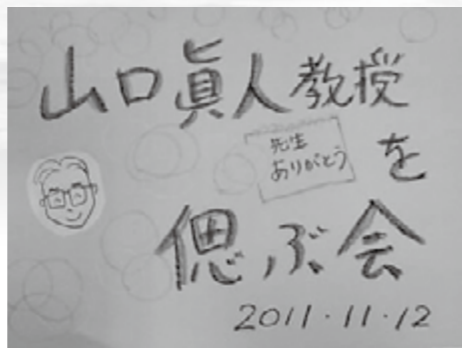 山口眞人教授
先生
ありがとう
を
偲ぶ会
2011・11・12